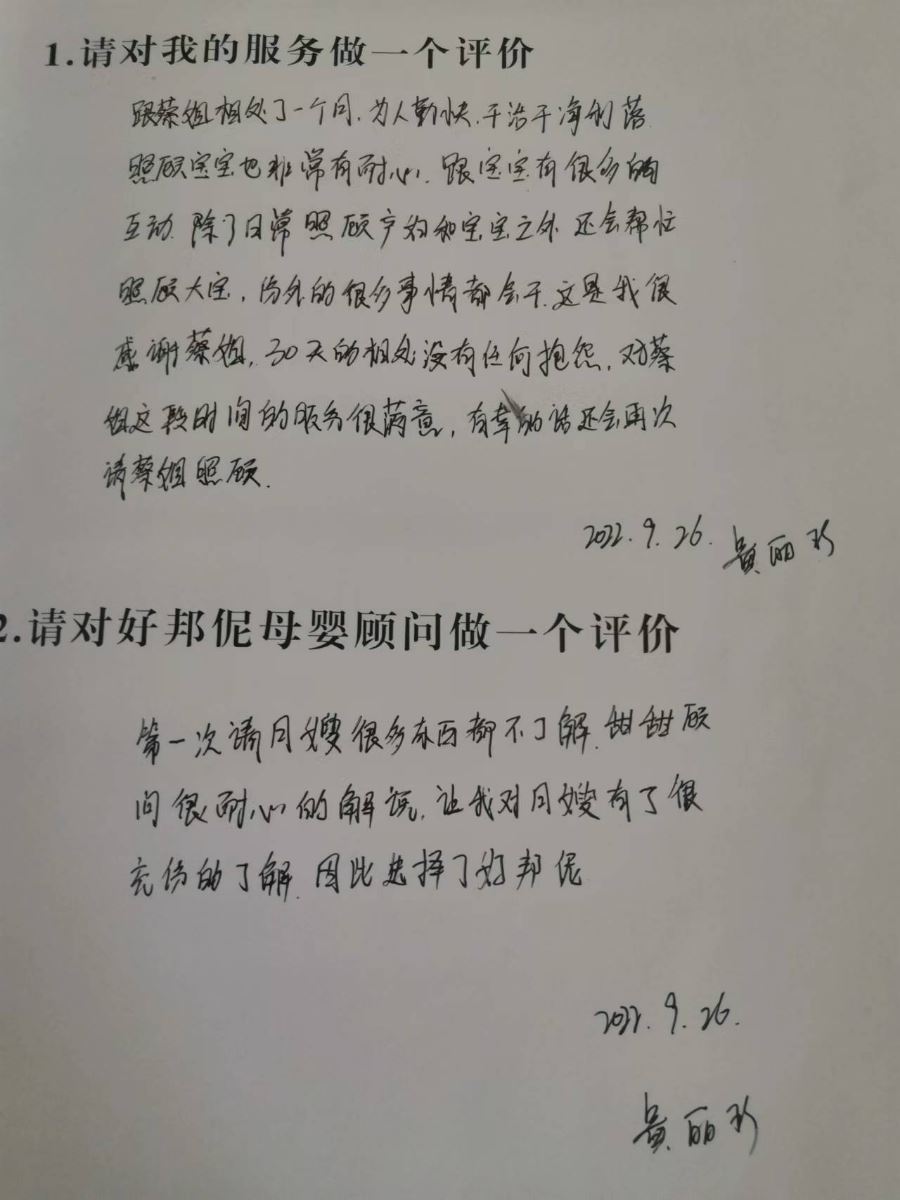 1.请对我的服务做一个评价
跟蔡姐相处了一个月,为人勤快,干活干净利落
照顾宝宝也非常有耐心,跟宝宝有很多的
互动.除了日常照顾产妇和宝宝之外,还会帮忙
照顾大宝,份外的很多事情都会干.这是我很
感谢蔡姐,30天的相处没有任何抱怨,对蔡
姐这段时间的服务很满意,有幸的话还会再次
请蔡姐照顾.
2022.9.26. 黄丽珍
2.请对好邦伲母婴顾问做一个评价
第一次请月嫂很多东西都不了解.甜甜顾
问很耐心的解说,让我对月嫂有了很
充份的了解.因此选择了好邦伲
2022.9.26.
黄丽珍